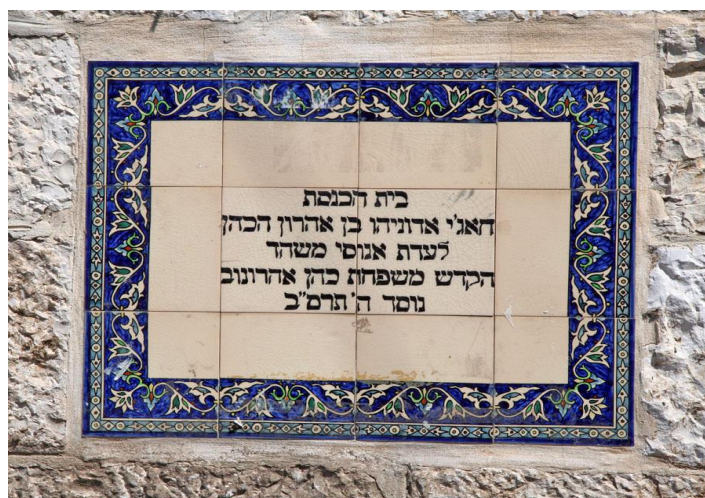 בית הכנסת
חאג'י אדוניהו בן אהרון הכהן
לעדת אנוסי משהד
הקדש משפחת כהן אהרונוב
נוסד ה'תרס"כ